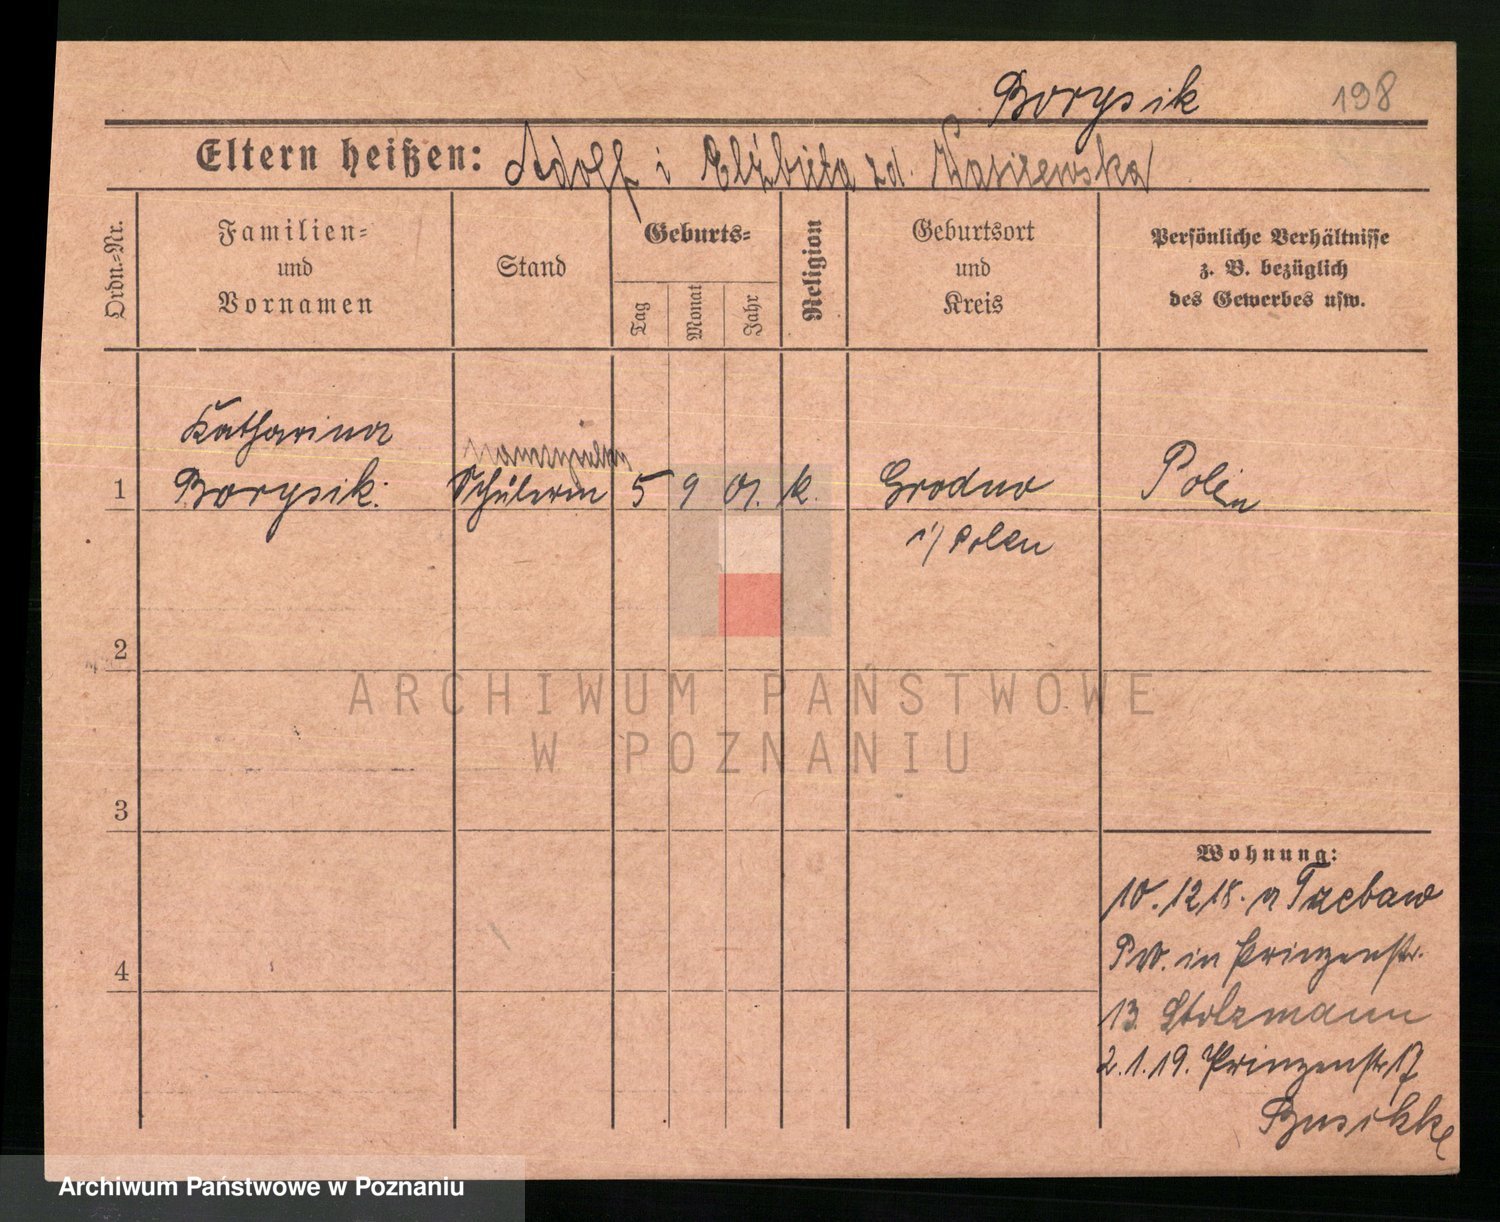 Borysik 198
Eltern heißen: Adolf i Elżbieta zd. Wasilewska
Ordn.=Nr.
Familien=
und
Vornamen
Stand
Geburts=
Tag
Monat
Jahr
Religion
Geburtsort
und
Kreis
Persönliche Verhältnisse
z. B. bezüglich
des Gewerbes usw.
Katharina
1 Borysik. Schülerin 5 9 01. k. Grodno Polin
i/Polen
2
ARCHIWUM PAŃSTWOWE
W POZNANIU
3
Wohnung:
10.12 18. Trzebaw
in Prinzenstr.
4
13. Stolzmann
2.1.19. Prinzenstr 17
Archiwum Państwowe w Poznaniu